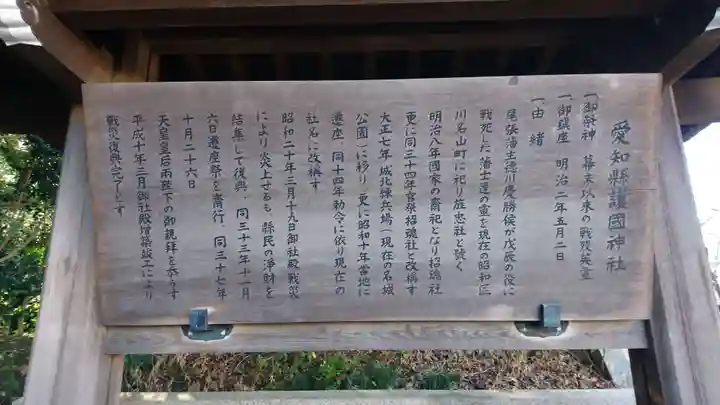 愛知縣護國神社
一、御祭神 幕末以来の戦歿英霊
一、御鎮座 明治二年五月二日
一、由緒
尾張藩主徳川慶勝侯が戊辰の役に
戦死した藩士達の霊を現在の昭和区
川名山町に祀り旌忠社と號く
明治八年國家の斎祀となり招魂社
更に同三十四年官祭招魂社と改稱す
大正七年城北練兵場(現在の名城
公園)に移り更に昭和十年当地に
遷座、同十四年勅令に依り現在の
社名に改稱す
昭和二十年三月十九日御社殿戦災
により炎上せるも、縣民の浄財を
結集して復興、同三十三年十一月
六日遷座祭を斎行、同三十七年
十月二十六日
天皇皇后両陛下の御親拜を忝うす
平成十年三月御社殿増築竣工により
戦災復興完了とす